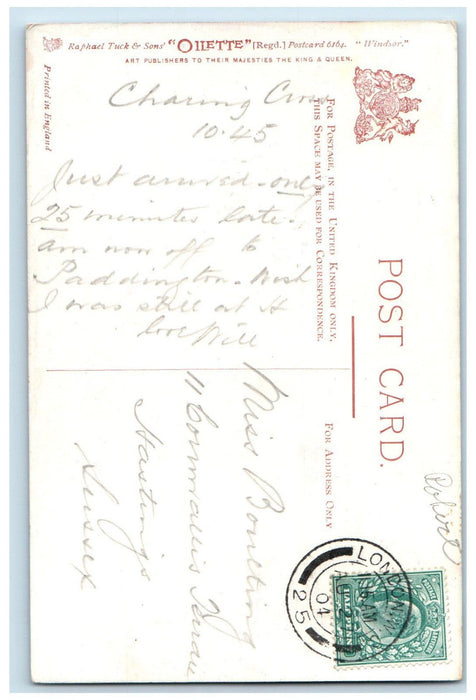 Raphael Tuck & Sons' "OILETTE" [Regd.] Postcard 6164. "Windsor."
ART PUBLISHERS TO THEIR MAJESTIES THE KING & QUEEN.
Printed in England
Charing Cross
10.45
Just arrived - only
25 minutes late.
am now off to
Paddington - Wish
I was still at H
love Will
FOR POSTAGE, IN THE UNITED KINGDOM ONLY,
THIS SPACE MAY BE USED FOR CORRESPONDENCE.
POST CARD.
FOR ADDRESS ONLY
Miss Boulting
11 Cornwallis Terrace
Hastings
Sussex
Robert
LONDON
04
25
HALF PENNY